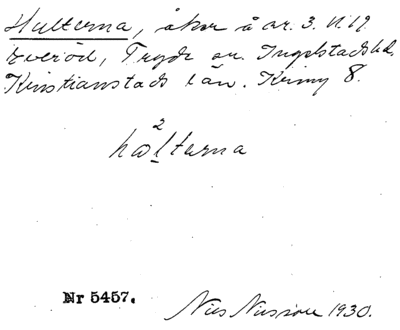 Hulterna, åker å ar. 3. N:o 19
Everöd, Tryde sn. Ingelstads hd.
Kristianstads län. Kriny 8.
2
hωlterna
Nr 5457.
Nils Nilsson 1930.